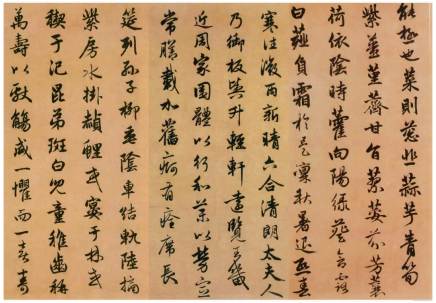 能極也菜則葱韭蒜芋青筍
紫薑堇薺甘旨蓼荽芬芳蘘
荷依陰時藿向陽綠葵含露
白薤負霜於是凜秋暑退熙春
寒往微雨新晴六合清朗太夫人
乃御板輿升輕軒遠覽王畿
近周家園體以行和藥以勞宣
常膳載加舊痾有痊席長
筵列孫子柳垂陰車結軌陸摘
紫房水掛赬鯉或宴于林或
禊于汜昆弟斑白兒童稚齒稱
萬壽以獻觴咸一懼而一喜壽